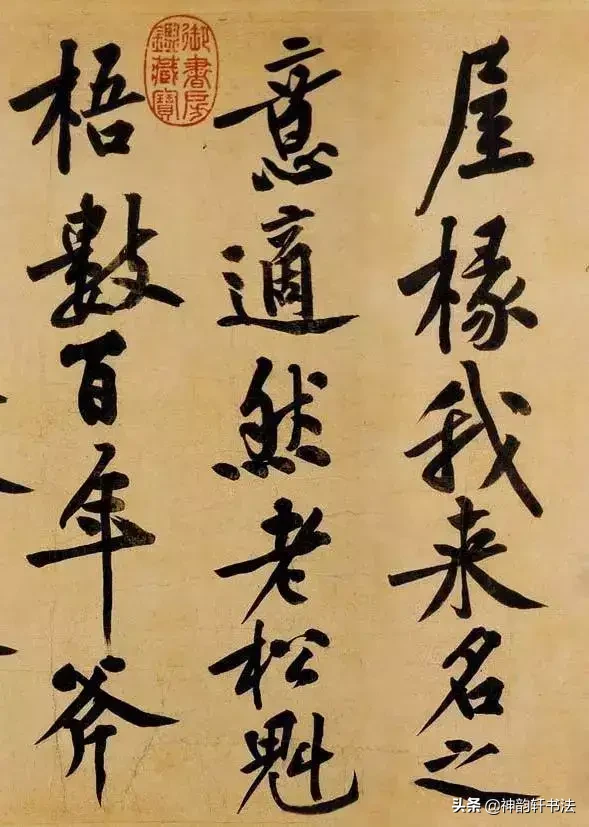 屋椽我来名之
意適然老松魁
梧數百年斧
御書房
鑑藏寶
头条 @神韵轩书法